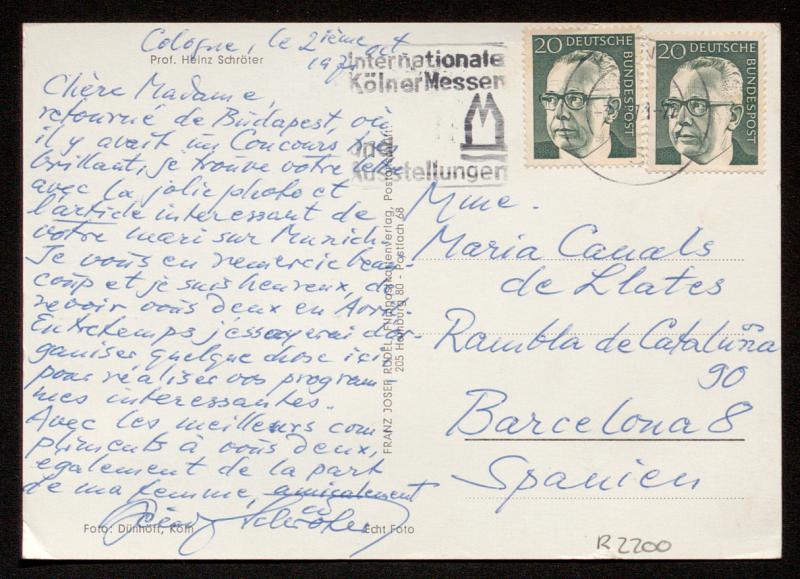 Cologne, le 2ième oct
Prof. Heinz Schröter
197
Chère Madame,
retourné de Budapest, où
il y avait un Concours très
brillant, je trouve votre
avec la jolie photo et
l'article interessant de
votre mari sur Munich.
Je vous en remercie beau-
coup et je suis heureux, de
revoir vous deux en
Entretemps j'essayerai d'or-
ganiser quelque chose ici
pour réaliser vos program
mes interessantes.
Avec les meilleurs com
pliments à vous deux,
egalement de la part
de ma femme, amicalement
Heinz Schröter
Foto: Dünhoff, Köln
Echt Foto
FRANZ JOSEF RÜDEL, Filmpostkartenverlag, Postgroßvertrieb
205 Hamburg 80 - Postfach 68
Internationale
Kölner Messen
und
Ausstellungen
20 DEUTSCHE BUNDESPOST
20 DEUTSCHE BUNDESPOST
Mme.
Maria Canals
de Llates
Rambla de Cataluña
90
Barcelona 8
Spanien
R 2200